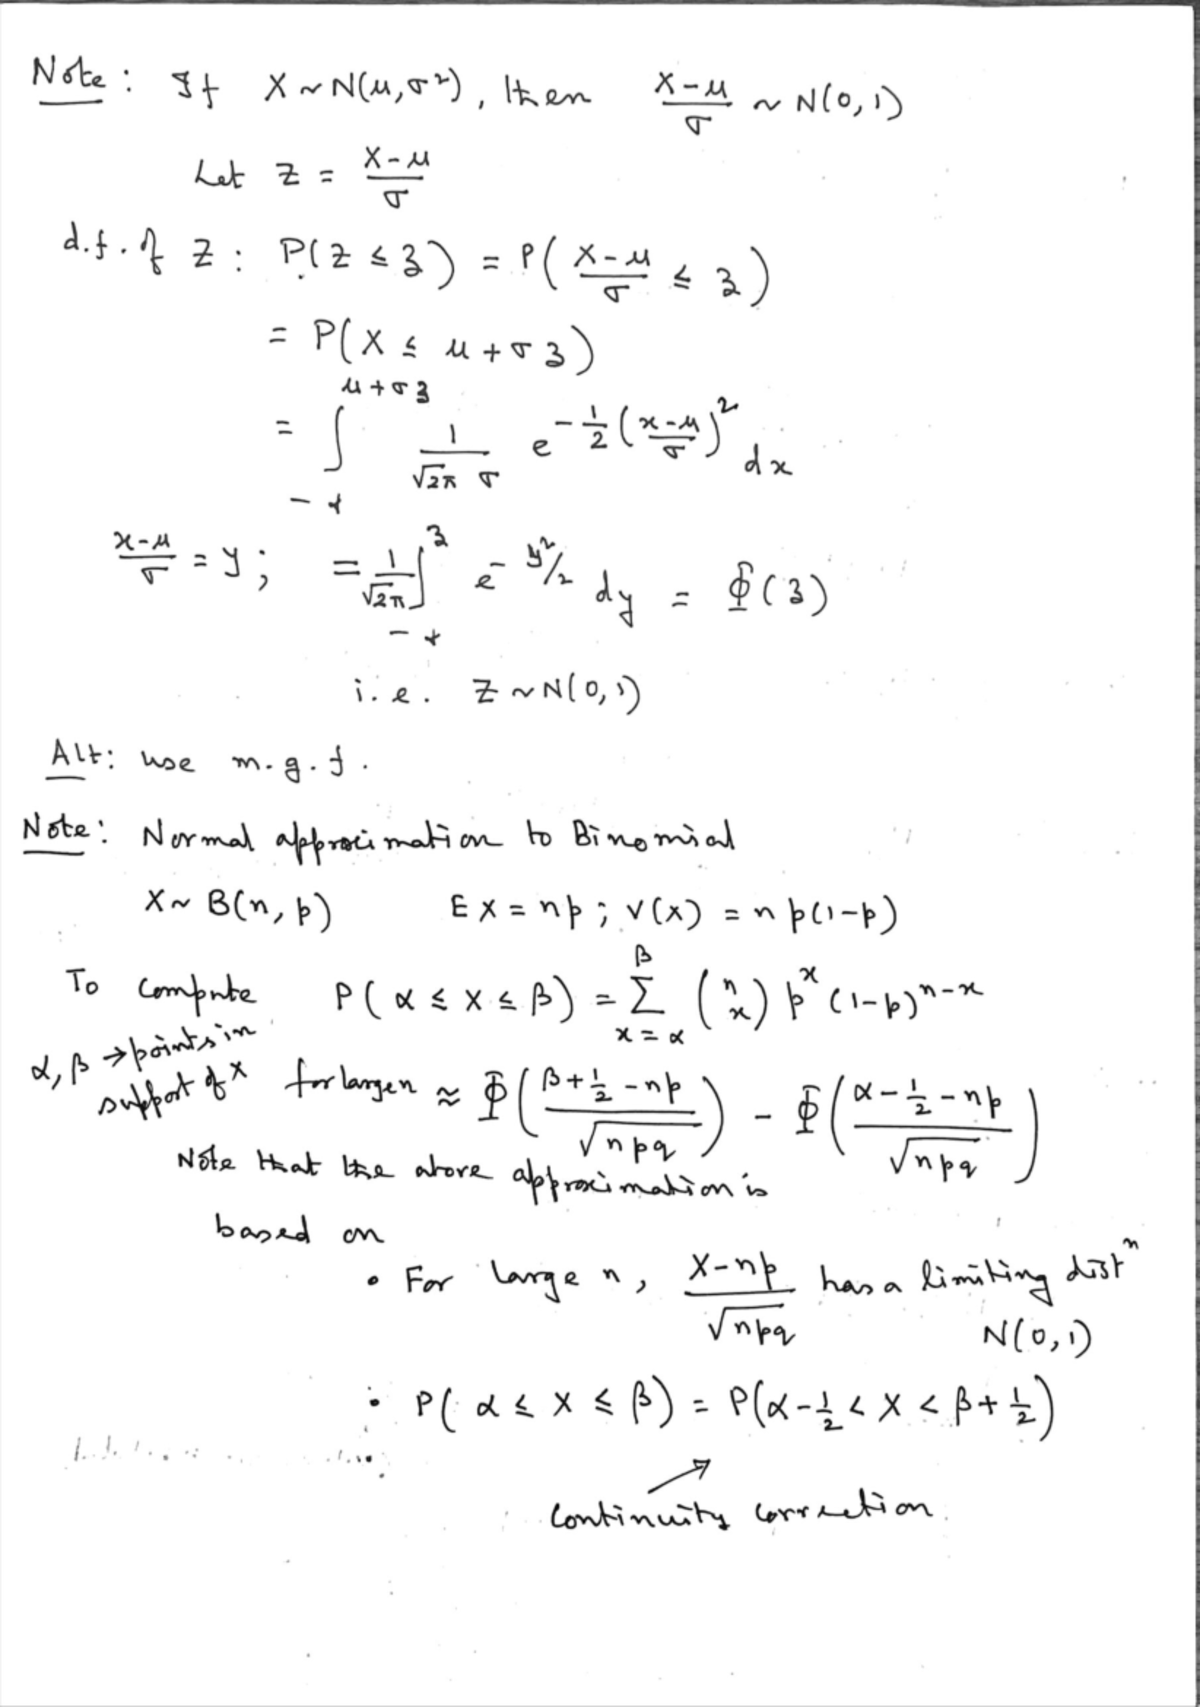 Note: If X ~ N(μ, σ²), then (X-μ)/σ ~ N(0, 1)
Let Z = (X-μ)/σ
d.f. of Z : P(Z ≤ z) = P( (X-μ)/σ ≤ z )
= P(X ≤ μ + σz)
= ∫_{-∞}^{μ+σz} 1/(√2π σ) e^{-1/2 ((x-μ)/σ)²} dx
(x-μ)/σ = y ; = 1/√2π ∫_{-∞}^{z} e^{-y²/2} dy = Φ(z)
i.e. Z ~ N(0, 1)
Alt: use m.g.f.
Note: Normal approximation to Binomial
X ~ B(n, p) EX = np ; V(X) = np(1-p)
To compute P(α ≤ X ≤ β) = Σ_{x=α}^{β} (n x) p^x (1-p)^{n-x}
α, β → points in support of X
for large n ≈ Φ( (β + 1/2 - np)/√npq ) - Φ( (α - 1/2 - np)/√npq )
Note that the above approximation is
based on
• For large n, (X-np)/√npq has a limiting distⁿ
N(0, 1)
• P(α ≤ X ≤ β) = P(α - 1/2 < X < β + 1/2)
Continuity correction